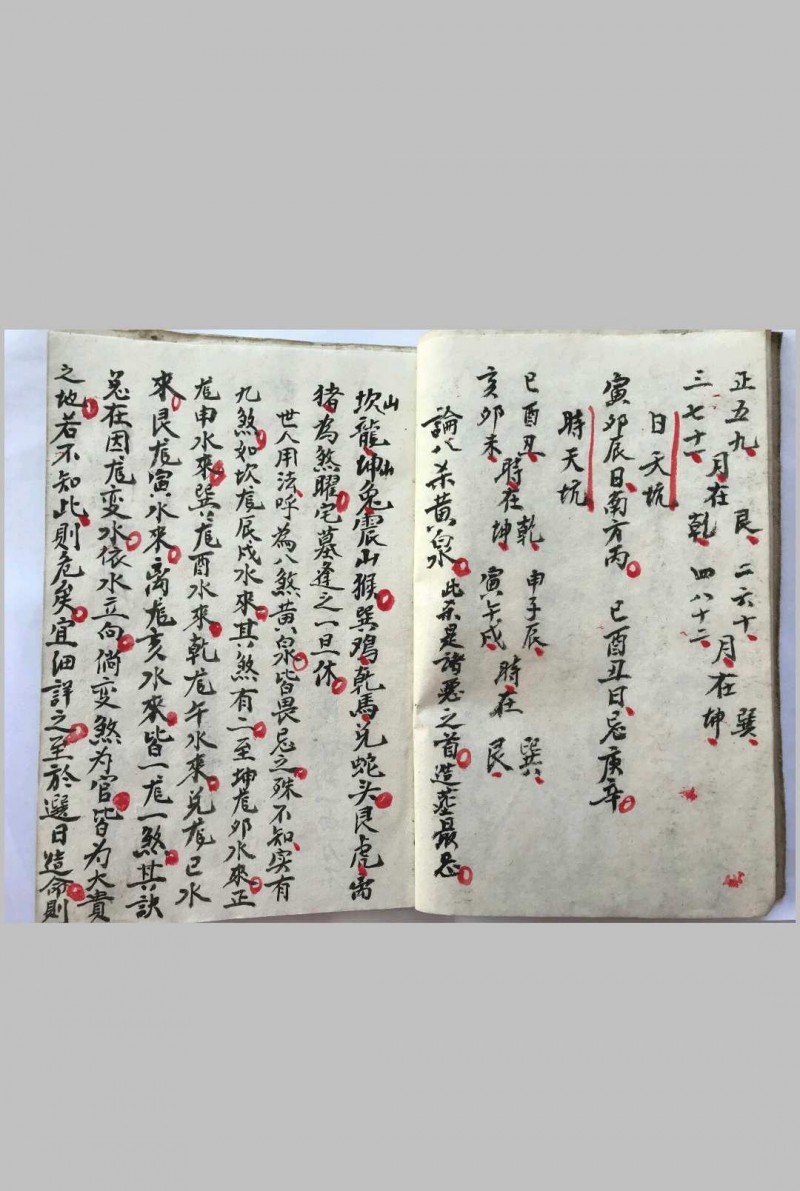 正五九月在艮 二六十月在巽
三七十一月在乾 四八十二月在坤
日天坑
寅卯辰日南方丙 巳酉丑日忌庚辛
時天坑
巳酉丑時在乾 申子辰時在巽
亥卯未時在坤 寅午戌時在艮
論八杀黄泉 此杀是諸惡之首造葬最忌
坎山龍坤山兔震山猴巽鸡乾馬兑蛇头艮虎离
猪為煞曜宅墓逢之一旦休
世人用法呼為八煞黄泉皆畏忌之殊不知实有
九煞如坎龙辰戌水來其煞有二至坤龙卯水來正
龙申水來巽龙酉水來乾龙午水來兑龙巳水
來艮龙寅水來离龙亥水來皆一龙一煞其訣
总在因龙变水依水立向倘变煞为官皆为大貴
之地若不知此則危矣宜细詳之至於選日造命則